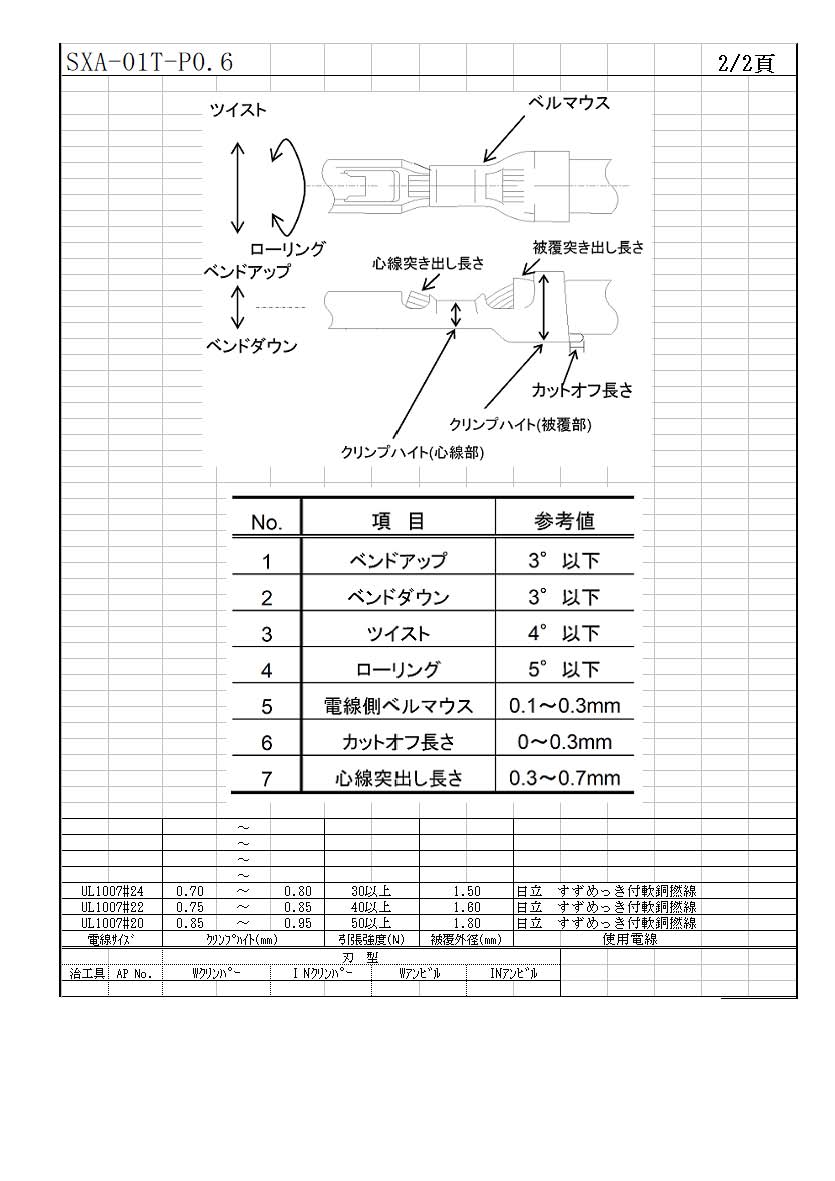 SXA-01T-P0.6 2/2頁
ツイスト
ベルマウス
ローリング
ベンドアップ
心線突き出し長さ
被覆突き出し長さ
ベンドダウン
カットオフ長さ
クリンプハイト(被覆部)
クリンプハイト(心線部)
No. 項 目 参考値
1 ベンドアップ 3° 以下
2 ベンドダウン 3° 以下
3 ツイスト 4° 以下
4 ローリング 5° 以下
5 電線側ベルマウス 0.1～0.3mm
6 カットオフ長さ 0～0.3mm
7 心線突出し長さ 0.3～0.7mm
～
～
～
～
UL1007#24 0.70 ～ 0.80 30以上 1.50 日立 すずめっき付軟銅撚線
UL1007#22 0.75 ～ 0.85 40以上 1.60 日立 すずめっき付軟銅撚線
UL1007#20 0.85 ～ 0.95 50以上 1.80 日立 すずめっき付軟銅撚線
電線ｻｲｽﾞ ｸﾘﾝﾌﾟﾊｲﾄ(mm) 引張強度(N) 被覆外径(mm) 使用電線
刃 型
治工具 AP No. Wｸﾘﾝﾊﾟｰ INｸﾘﾝﾊﾟｰ Wｱﾝﾋﾞﾙ INｱﾝﾋﾞﾙ